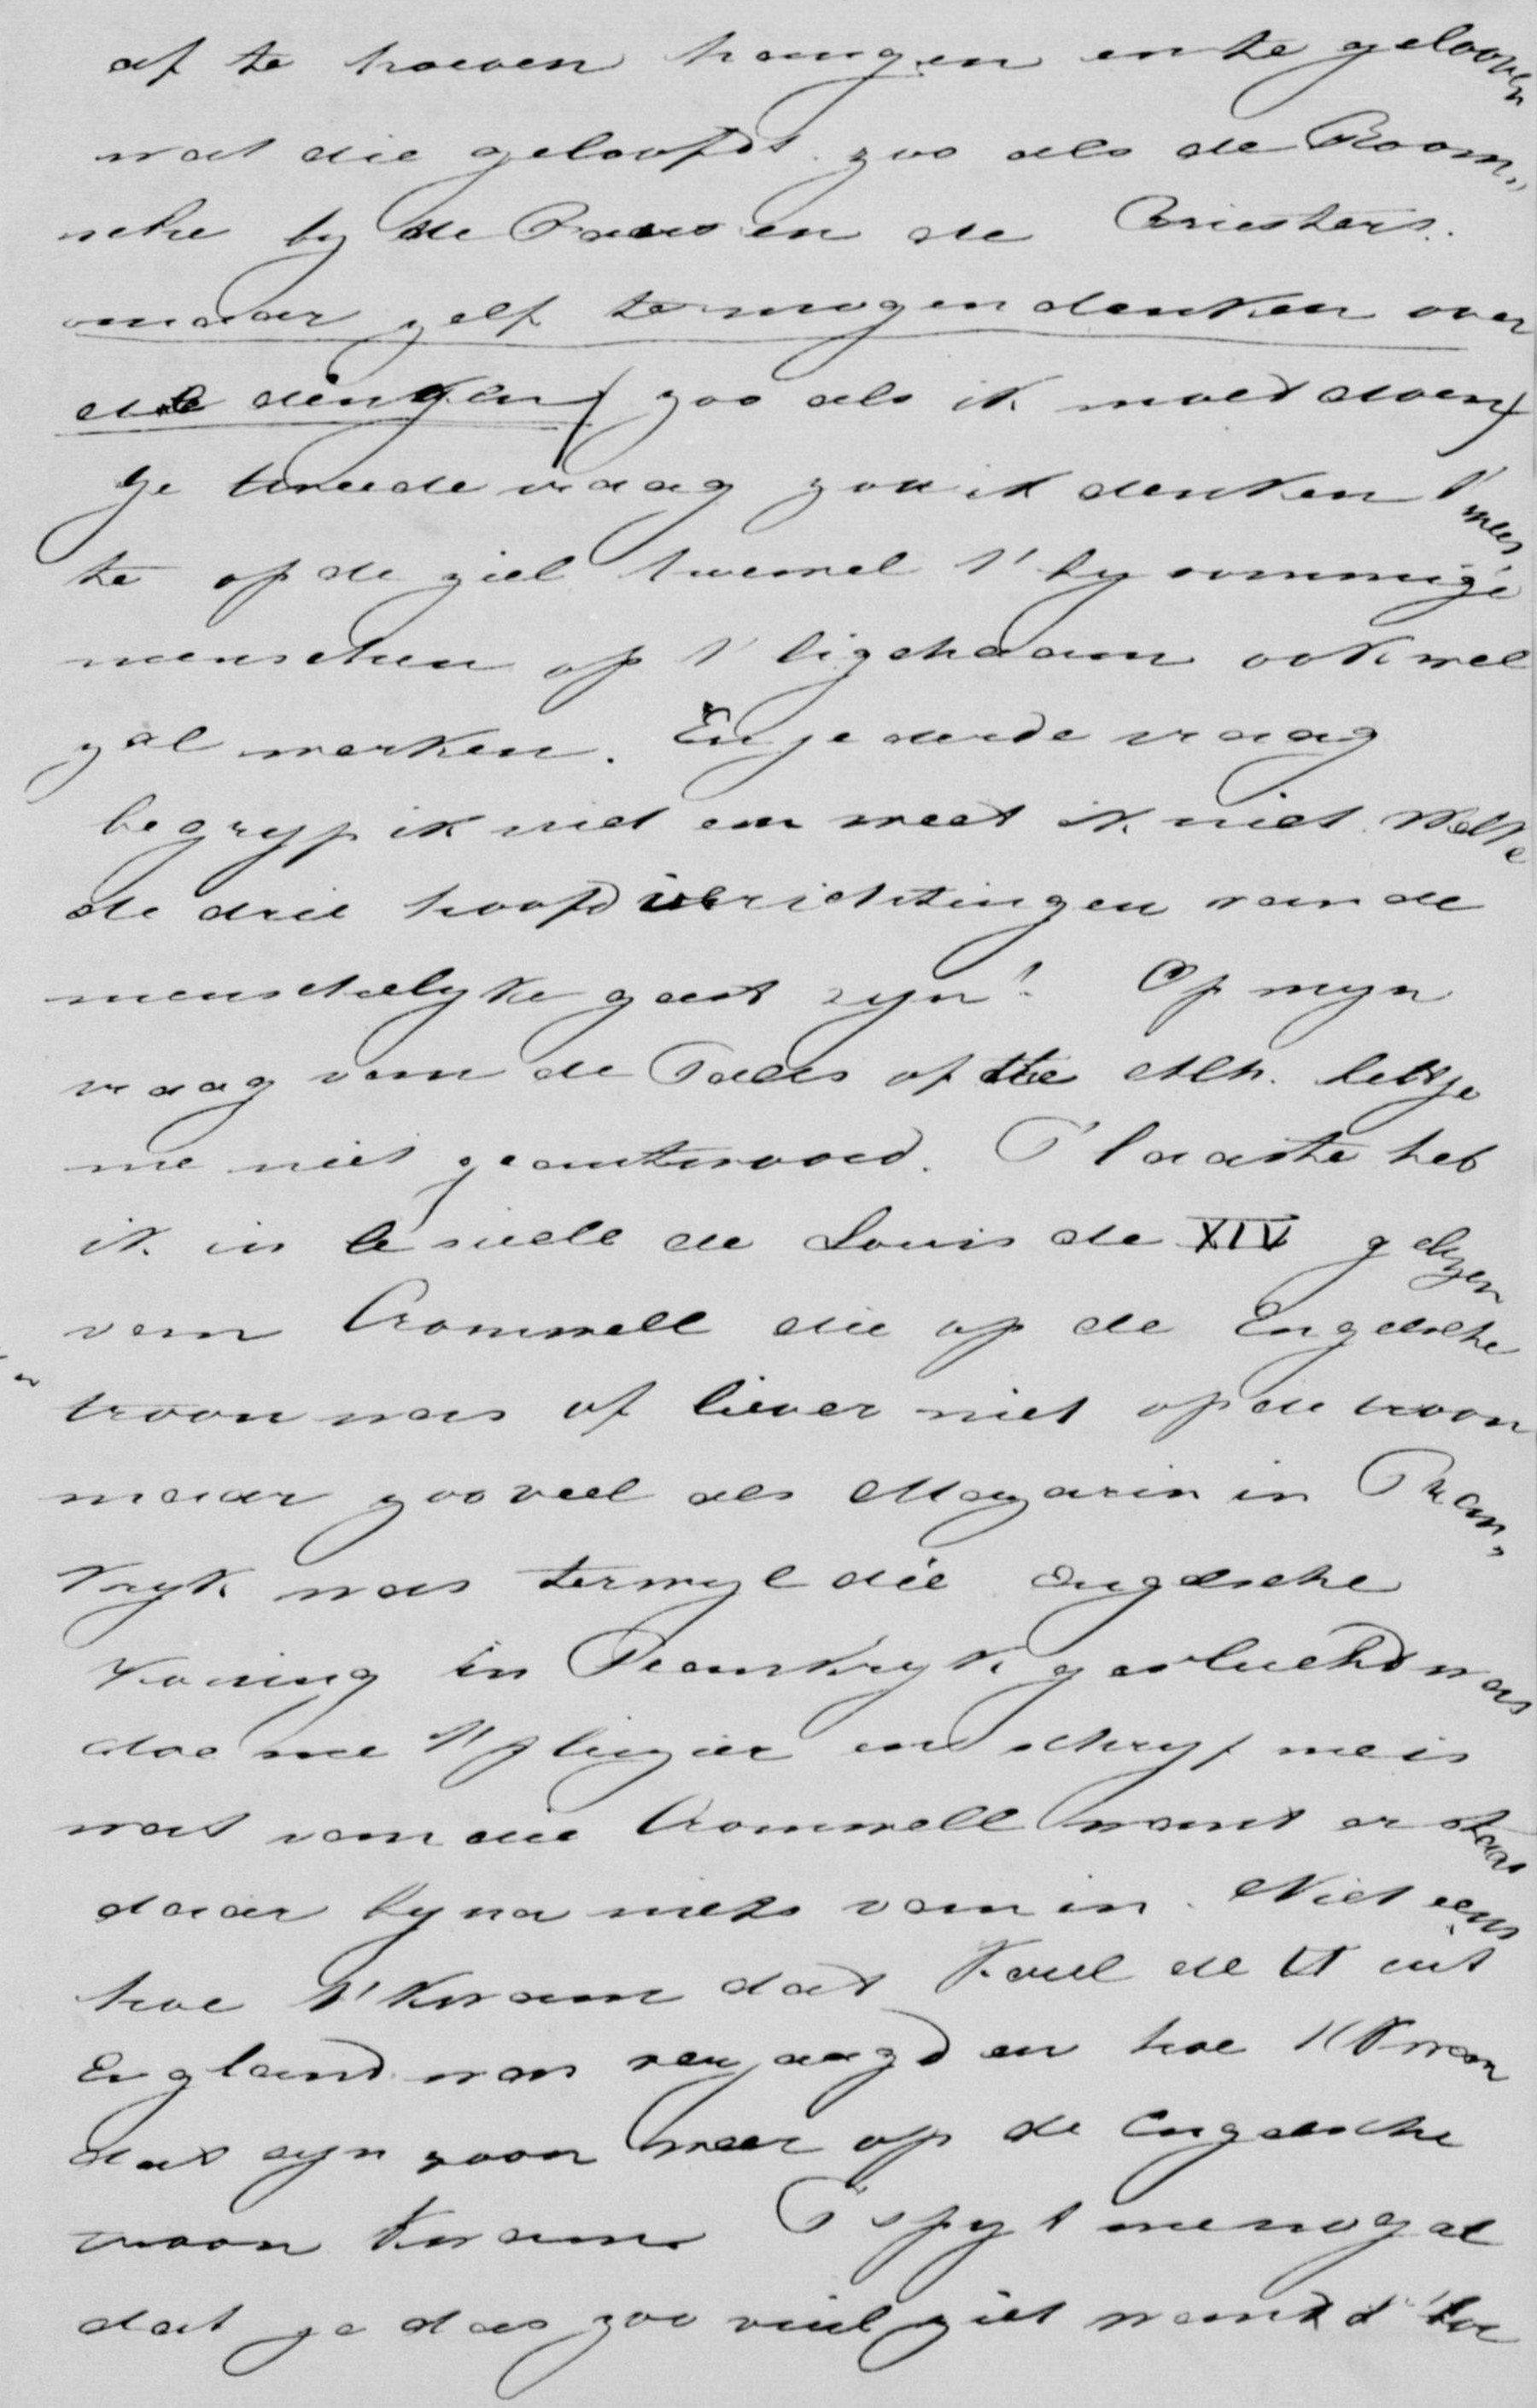 af te hoeven hangen en te gelooven
wat die gelooft zoo als de Room„
sche by de Paus en de Priesters.
maar zelf te mogen denken over
die dingen (zoo als ik moet doen)
Je tweede vraag zou ik denken t' mees
te op de ziel hoewel t' by sommige
menschen op t' ligchaam ook wel
zal werken. En je derde vraag
begryp ik niet en weet ik niet. Welke
de drie hoofd verichtingen van de
menschelyke geest zyn? Op myn
vraag van de Paus of the Alh. heb je
me niet geantwoord. T' laaste heb
ik in le siecle de Louis de XIV gelezen
van Cromwell die op de Engelsche
troon was of liever niet op de troon
maar zooveel als Mazarin in Fran„
kryk was terwyl die Engelsche
Koning in Frankryk gevlucht was
doe me t' plezier en schryf me is
wat van die Cromwell want er staat
daar byna niets van in. Niet eens
hoe t' kwam dat Karel de II uit
Engeland was verjaagd en hoe t' Kwam
dat zyn zoon weer op de Engelsche
troon kwam T spyt me nog al
dat je das zoo veul ziet want t' hoe